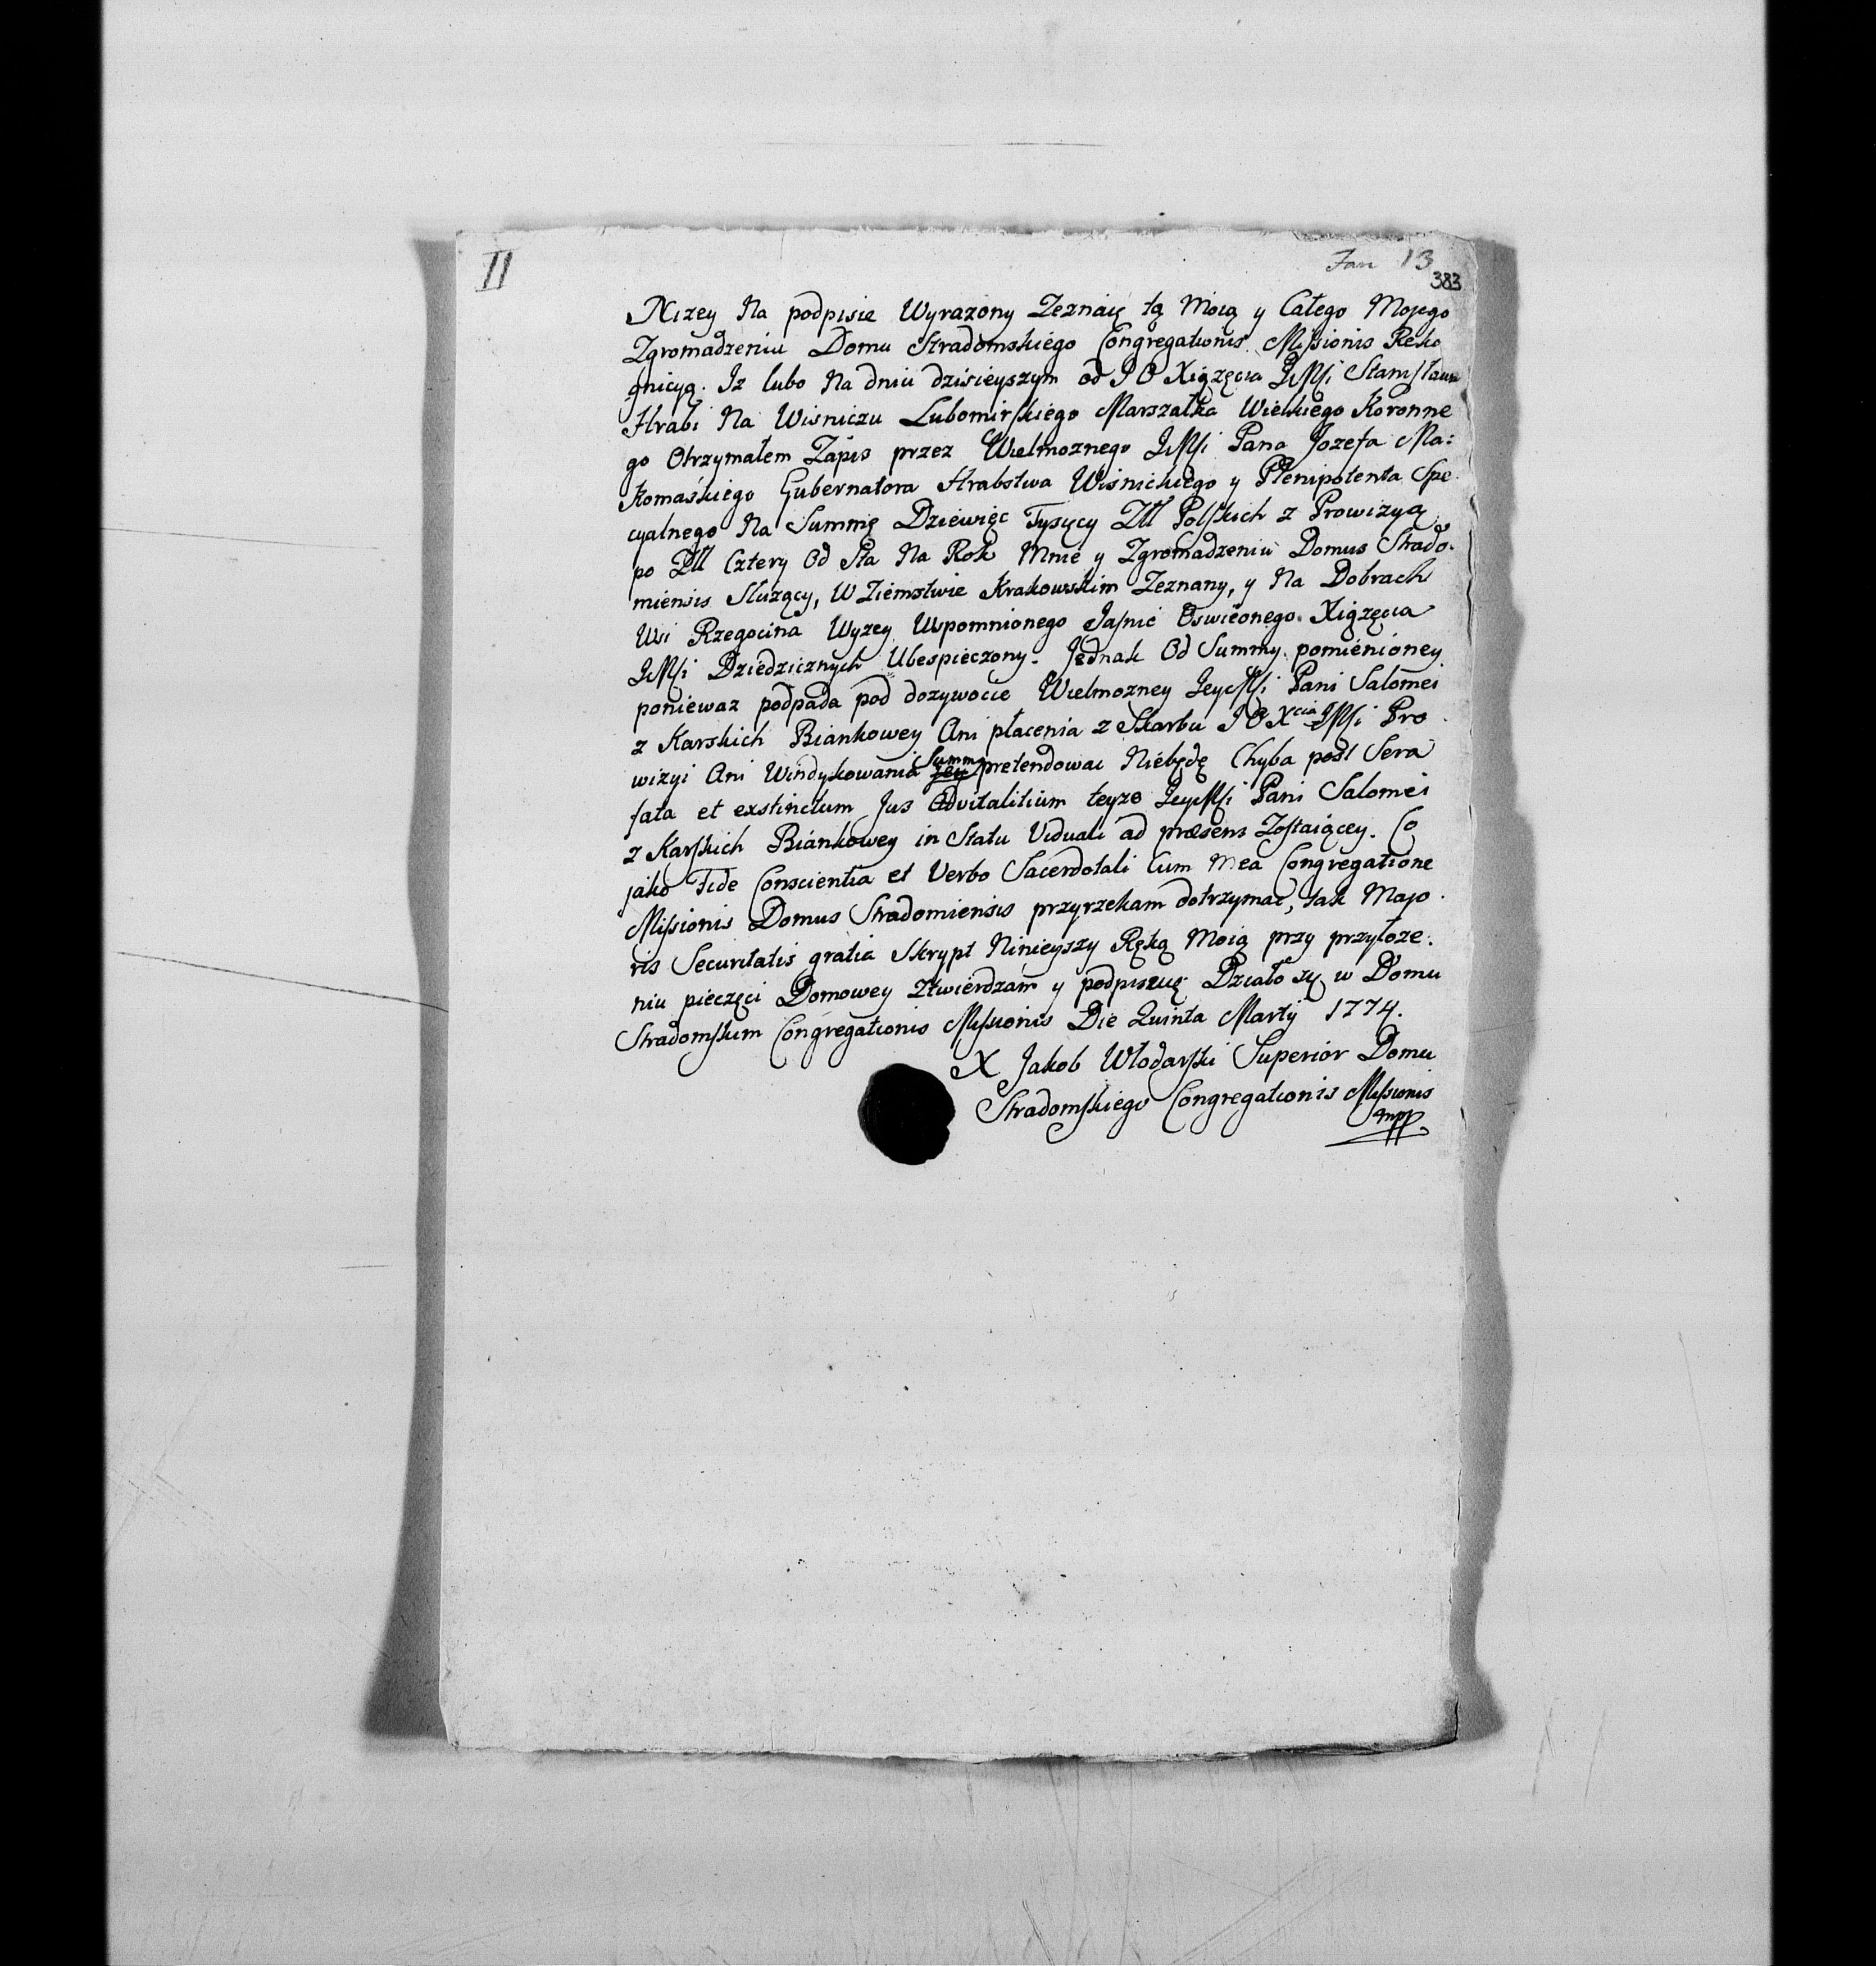 II
Jan 13
383
Nizey Na podpisie Wyrazony Zeznaię tą Moią y Całego Mojego
Zgromadzeniu Domu Stradomskiego Congregationis Missionis Reko
gnicyą. Iz lubo Na dniu dzisieyszym od J O Xiązęcia JMsi Stanisława
Hrabi Na Wisniczu Lubomirskiego Marszałka Wielkiego Koronne
go Otrzymałem Zapis przez Wielmoznego JMsi Pana Jozefa Ma:
komaskiego Gubernatora Hrabstwa Wisnickiego y Plenipotenta Spe
cyalnego Na Summę Dziewięc Tysęcy Zlł Polskich z Prowizyą
po Zlł Cztery Od Sta Na Rok Mnie y Zgromadzeniu Domus Strado.
miensis Słuzący, W Ziemstwie Krakowskim Zeznany, y Na Dobrach
Wsi Rzegocina Wyzey Wpomnionego Jasnie Oswieonego Xiązęcia
JMsi Dziedzicznych Ubespieczony. Jednak Od Summy pomienioney
poniewaz podpada pod dozywocie Wielmozney JeyMsi Pani Salomei
z Karskich Biankowey Ani płacenia z Skarbu J O Xcia JMsi Pro
wizyi Ani Windykowania Summy pretendowac Niebędę Chyba post Sera
fata et exstinctum Jus Advitalitium teyze JeyMsi Pani Salomei
z Karskich Biankowey in Statu Viduali ad præsens Zostaiącey. Co
jako Fide Conscientia et Verbo Sacerdotali Cum Mea Congregatione
Missionis Domus Stradomiensis przyrzekam dotrzymac, tak Majo.
ris Securitatis gratia Skrypt Ninieyszy Ręką Moią przy przyłoze:
niu pieczęci Domowey Ztwierdzam y podpisuię Działo sę w Domu
Stradomskim Congregationis Missionis Die Quinta Martij 1774.
X Jakob Włodarski Superior Domu
Stradomskiego Congregationis Missionis
mpp